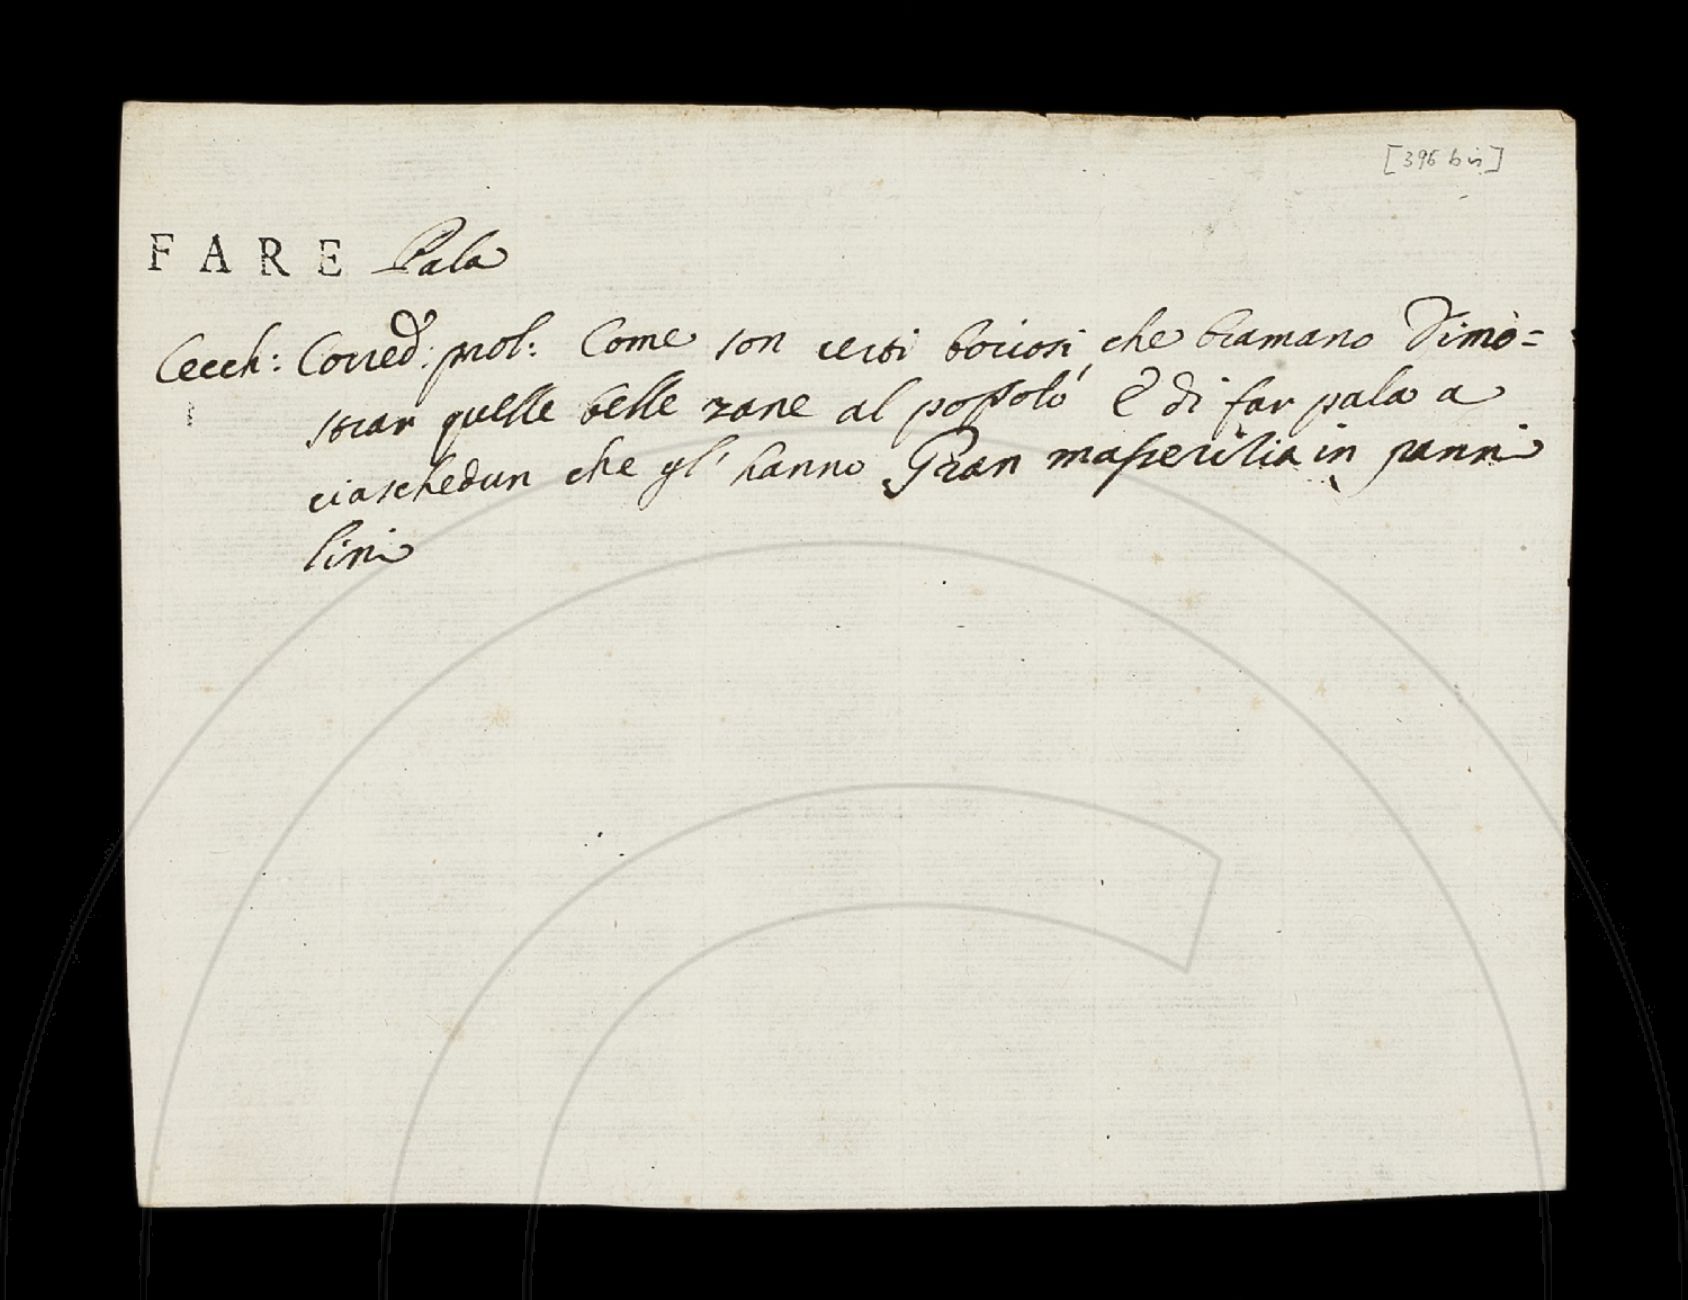 [396 bis]
FARE Pala
Cecch: Corred: prol: Come son certi boriosi, che bramano Dimo=
strar quelle belle zane al popolo È di far pala a
ciaschedun che gl' hanno Gran masserizia in panni
lini